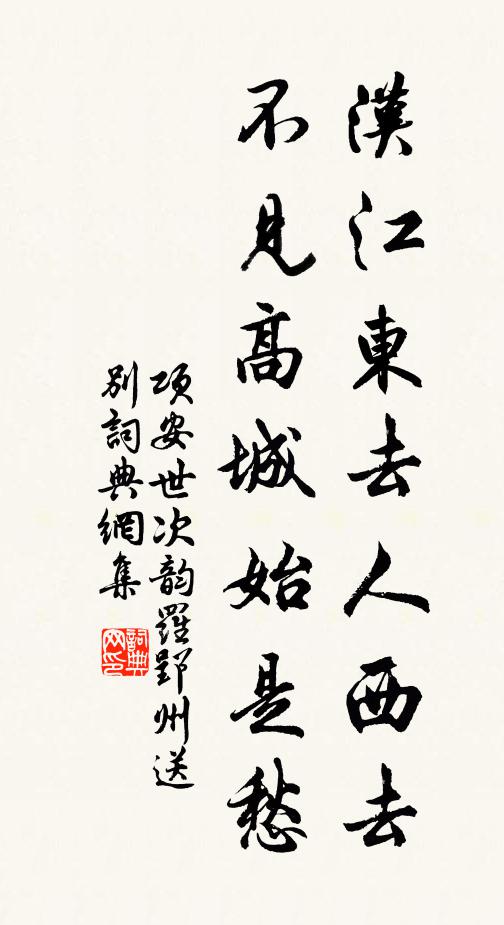 漢江東去人西去
不見高城始是愁
項安世次韵羅郢州送
別詞典網集
詞典
网印